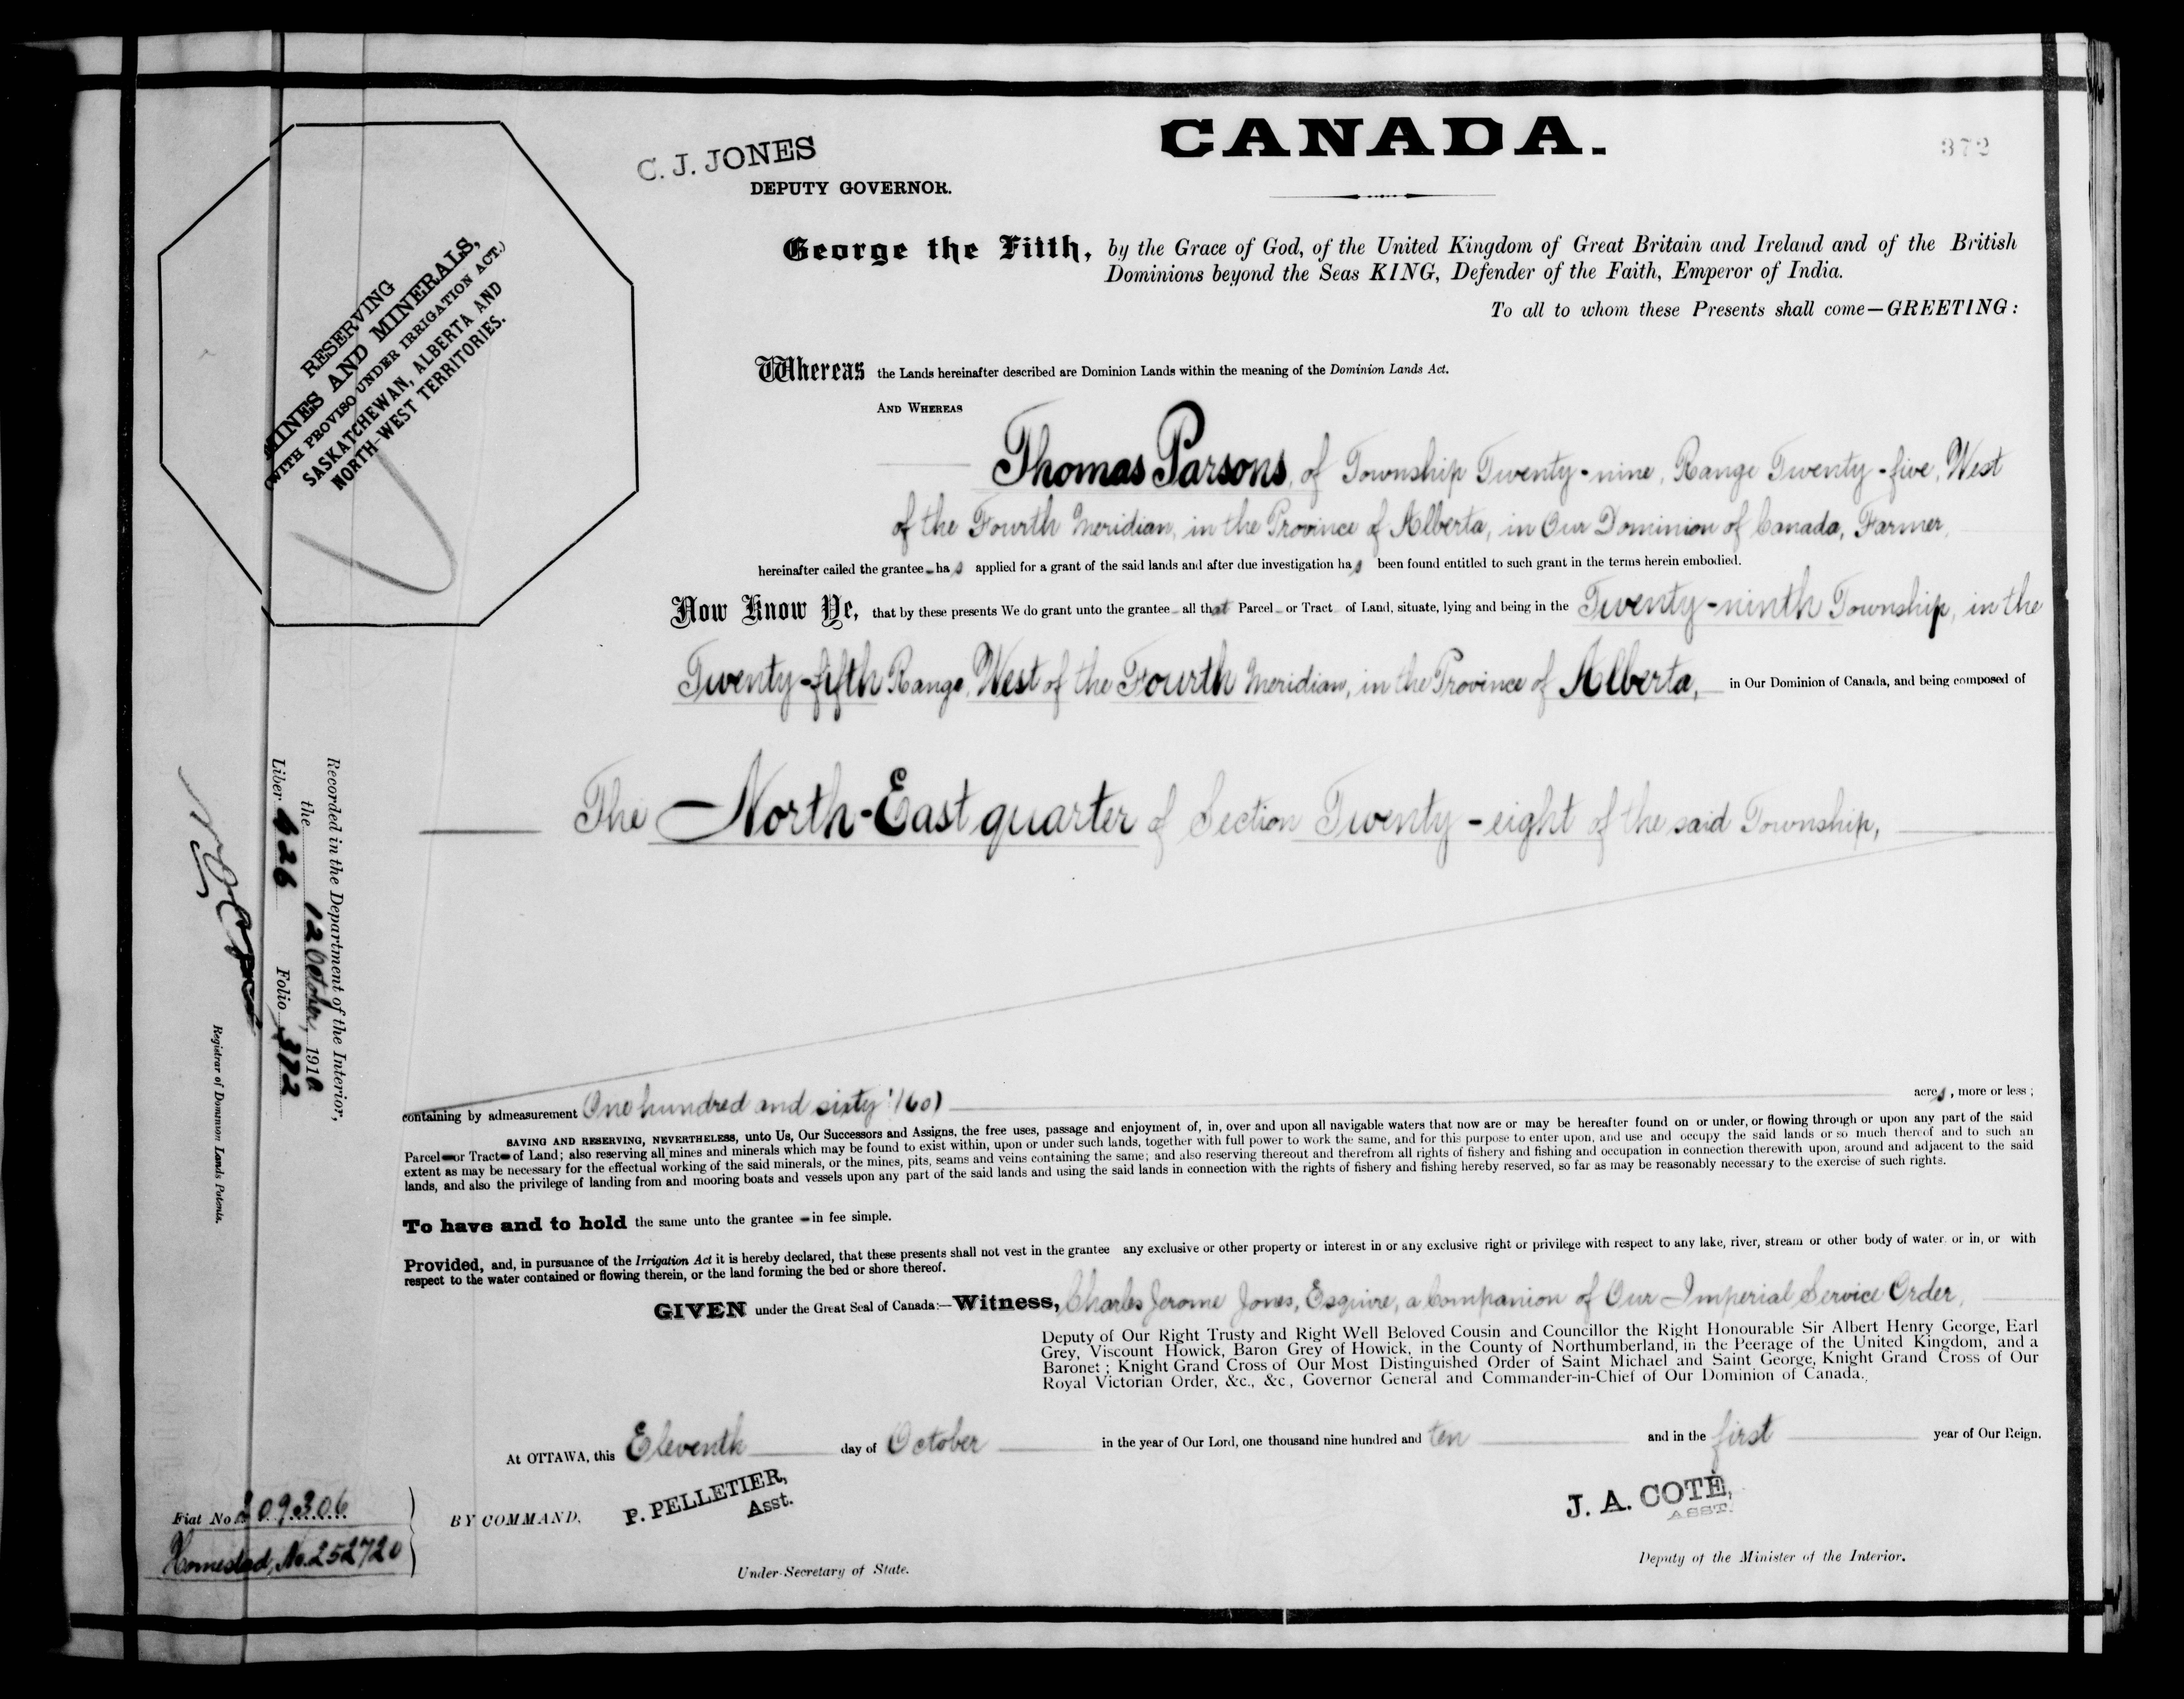 CANADA.
372
C. J. JONES
DEPUTY GOVERNOR.
George the Fifth, by the Grace of God, of the United Kingdom of Great Britain and Ireland and of the British
Dominions beyond the Seas KING, Defender of the Faith, Emperor of India.
To all to whom these Presents shall come—GREETING:
RESERVING
MINES AND MINERALS,
(WITH PROVISO UNDER IRRIGATION ACT.)
SASKATCHEWAN, ALBERTA AND
NORTH-WEST TERRITORIES.
Whereas the Lands hereinafter described are Dominion Lands within the meaning of the Dominion Lands Act.
AND WHEREAS
Thomas Parsons, of Township Twenty-nine, Range Twenty-five, West
of the Fourth Meridian, in the Province of Alberta, in Our Dominion of Canada, Farmer,
hereinafter called the grantee - has applied for a grant of the said lands and after due investigation has been found entitled to such grant in the terms herein embodied.
Now Know Ye, that by these presents We do grant unto the grantee all that Parcel or Tract of Land, situate, lying and being in the Twenty-ninth Township, in the
Twenty-fifth Range, West of the Fourth Meridian, in the Province of Alberta, in Our Dominion of Canada, and being composed of
The North-East quarter of Section Twenty-eight of the said Township,
containing by admeasurement One hundred and sixty (160) acres, more or less;
SAVING AND RESERVING, NEVERTHELESS, unto Us, Our Successors and Assigns, the free uses, passage and enjoyment of, in, over and upon all navigable waters that now are or may be hereafter found on or under, or flowing through or upon any part of the said
Parcel or Tract of Land; also reserving all mines and minerals which may be found to exist within, upon or under such lands, together with full power to work the same, and for this purpose to enter upon, and use and occupy the said lands or so much thereof and to such an
extent as may be necessary for the effectual working of the said minerals, or the mines, pits, seams and veins containing the same; and also reserving thereout and therefrom all rights of fishery and fishing and occupation in connection therewith upon, around and adjacent to the said
lands, and also the privilege of landing from and mooring boats and vessels upon any part of the said lands and using the said lands in connection with the rights of fishery and fishing hereby reserved, so far as may be reasonably necessary to the exercise of such rights.
To have and to hold the same unto the grantee in fee simple.
Provided, and, in pursuance of the Irrigation Act it is hereby declared, that these presents shall not vest in the grantee any exclusive or other property or interest in or any exclusive right or privilege with respect to any lake, river, stream or other body of water or in, or with
respect to the water contained or flowing therein, or the land forming the bed or shore thereof.
GIVEN under the Great Seal of Canada:—Witness, Charles Jerome Jones, Esquire, a Companion of Our Imperial Service Order,
Deputy of Our Right Trusty and Right Well Beloved Cousin and Councillor the Right Honourable Sir Albert Henry George, Earl
Grey, Viscount Howick, Baron Grey of Howick, in the County of Northumberland, in the Peerage of the United Kingdom, and a
Baronet; Knight Grand Cross of Our Most Distinguished Order of Saint Michael and Saint George, Knight Grand Cross of Our
Royal Victorian Order, &c., &c., Governor General and Commander-in-Chief of Our Dominion of Canada.
At OTTAWA, this Eleventh day of October in the year of Our Lord, one thousand nine hundred and ten and in the first year of Our Reign.
BY COMMAND,
P. PELLETIER,
Asst.
Under-Secretary of State.
J. A. COTÉ,
ASST.
Deputy of the Minister of the Interior.
Recorded in the Department of the Interior,
the 12 October, 1910
Liber 626 Folio 372
Registrar of Dominion Lands Patents.
Fiat No 209306
Homestead, No. 252720